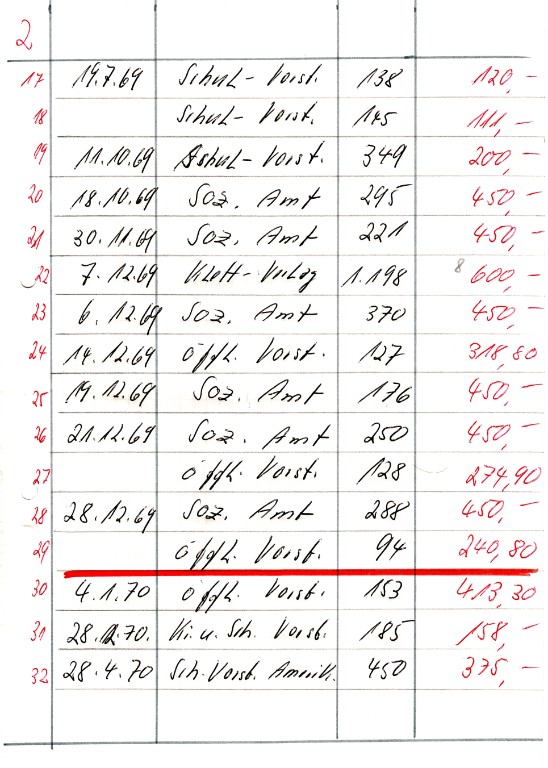 2
17 19.7.69 Schul-Vorst. 138 120,-
18 Schul-Vorst. 145 111,-
19 11.10.69 Schul-Vorst. 349 200,-
20 18.10.69 Soz. Amt 295 450,-
21 30.11.69 Soz. Amt 221 450,-
22 7.12.69 Klett-Verlag 1.198 8 600,-
23 6.12.69 Soz. Amt 370 450,-
24 14.12.69 öffl. Vorst. 127 318,80
25 19.12.69 Soz. Amt 176 450,-
26 21.12.69 Soz. Amt 250 450,-
27 öffl. Vorst. 128 274,90
28 28.12.69 Soz. Amt 288 450,-
29 öffl. Vorst. 94 240,80
30 4.1.70 öffl. Vorst. 153 413,30
31 28.2.70. Ki. u. Sch. Vorst. 185 158,-
32 28.4.70 Sch. Vorst. Amerik. 450 375,-